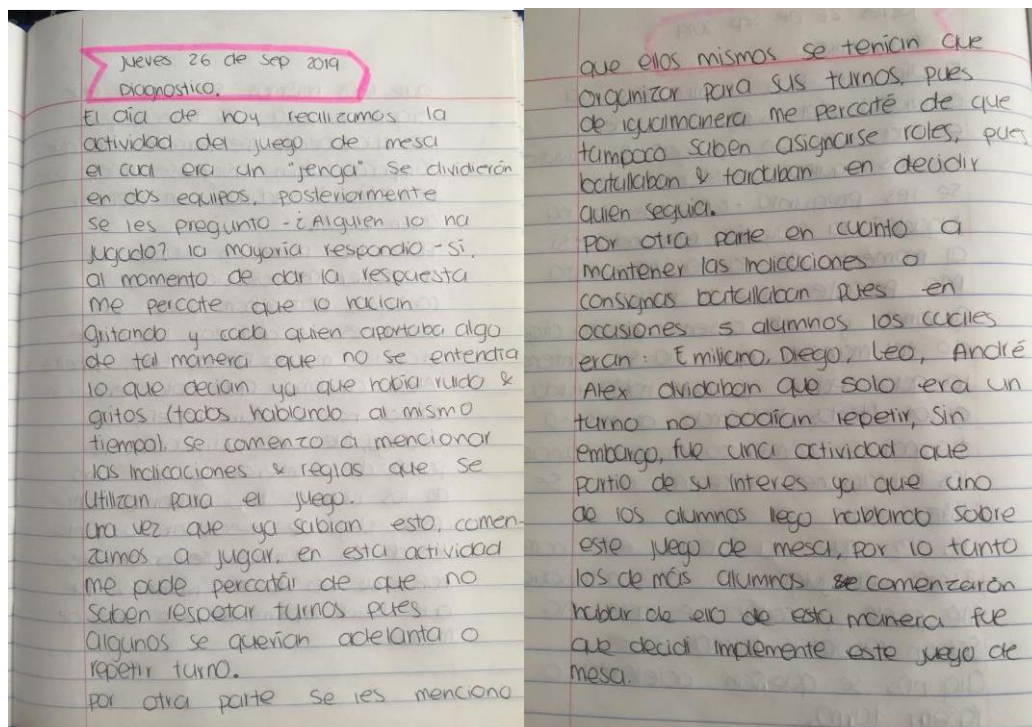 Jueves 26 de Sep 2019
Diagnostico.
El día de hoy realizamos la
actividad del juego de mesa
el cual era un "jenga" se dividierón
en dos equipos, posteriormente
se les pregunto -¿Alguien lo ha
jugado? la mayoría respondio -si.
al momento de dar la respuesta
me percate que lo hacían
gritando y cada quien aportaba algo
de tal manera que no se entendia
lo que decian ya que había ruido &
gritos (todos hablando al mismo
tiempo), se comenzo a mencionar
las indicaciones & reglas que se
utilizan para el juego.
una vez que ya sabian esto, comen-
zamos a jugar, en esta actividad
me pude percatar de que no
saben respetar turnos pues
algunos se querían adelanta o
repetir turno.
por otra parte se les menciono
que ellos mismos se tenían que
organizar para sus turnos, pues
de igualmanera me percaté de que
tampoco saben asignarse roles, pues
batallaban & tardaban en decidir
quien seguia.
por otra parte en cuanto a
mantener las indicaciones o
consignas batallaban pues en
occisiones 5 alumnos los cuales
eran: Emiliano, Diego, Leo, André
Alex olvidaban que solo era un
turno no podían repetir, sin
embargo, fue una actividad que
partio de su interes ya que uno
de los alumnos llego hablando sobre
este juego de mesa, por lo tanto
los de más alumnos se comenzarón
habar de ello de esta manera fue
que decidi implemente este juego de
mesa.